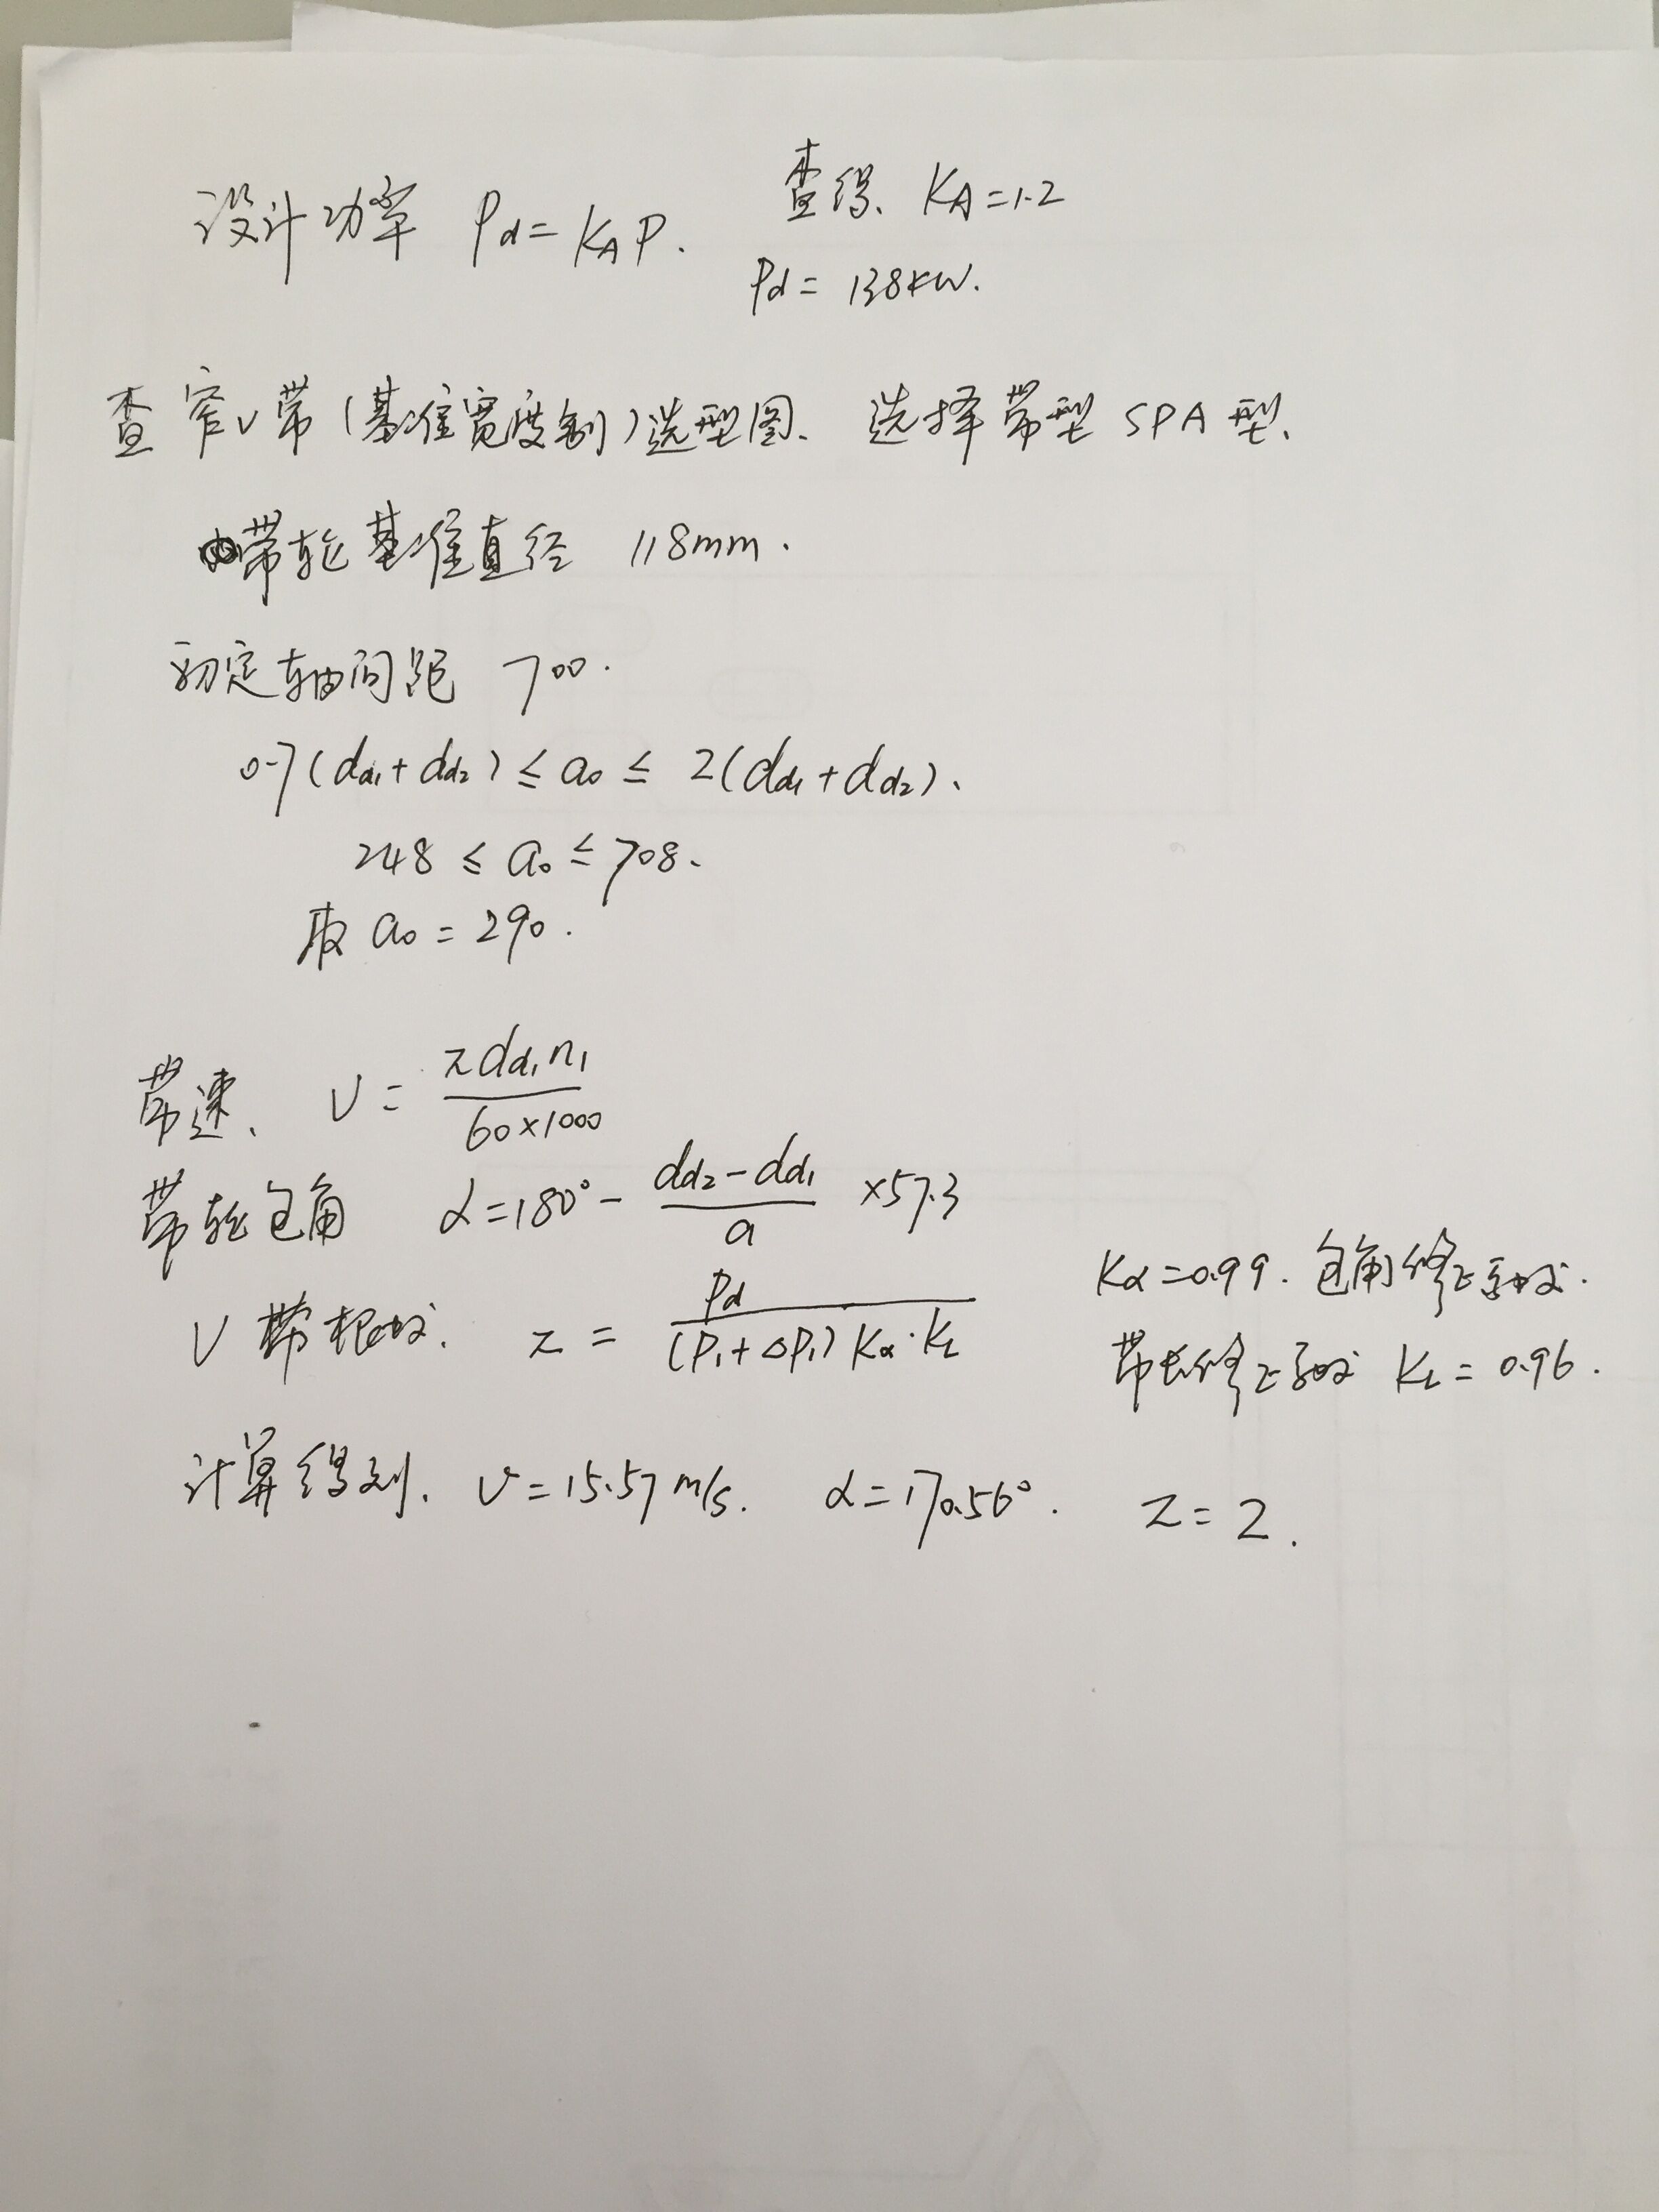 设计功率 Pd = KAP. 查得、KA = 1.2
Pd = 138kW.
查窄V带(基准宽度制)选型图、选择带型SPA型、
带轮基准直径 118mm.
初定轴间距 700.
0.7(dd1 + dd2) ≤ a0 ≤ 2(dd1 + dd2)、
248 ≤ a0 ≤ 708、
取 a0 = 290.
带速、 V = πdd1n1 / 60×1000
带轮包角 α = 180° - (dd2 - dd1) / a ×57.3
Kα = 0.99. 包角修正系数.
V带根数. z = Pd / (P1 + ΔP1) Kα·KL
带长修正系数 KL = 0.96.
计算得到. v = 15.57 m/s. α = 170.56°. Z = 2.